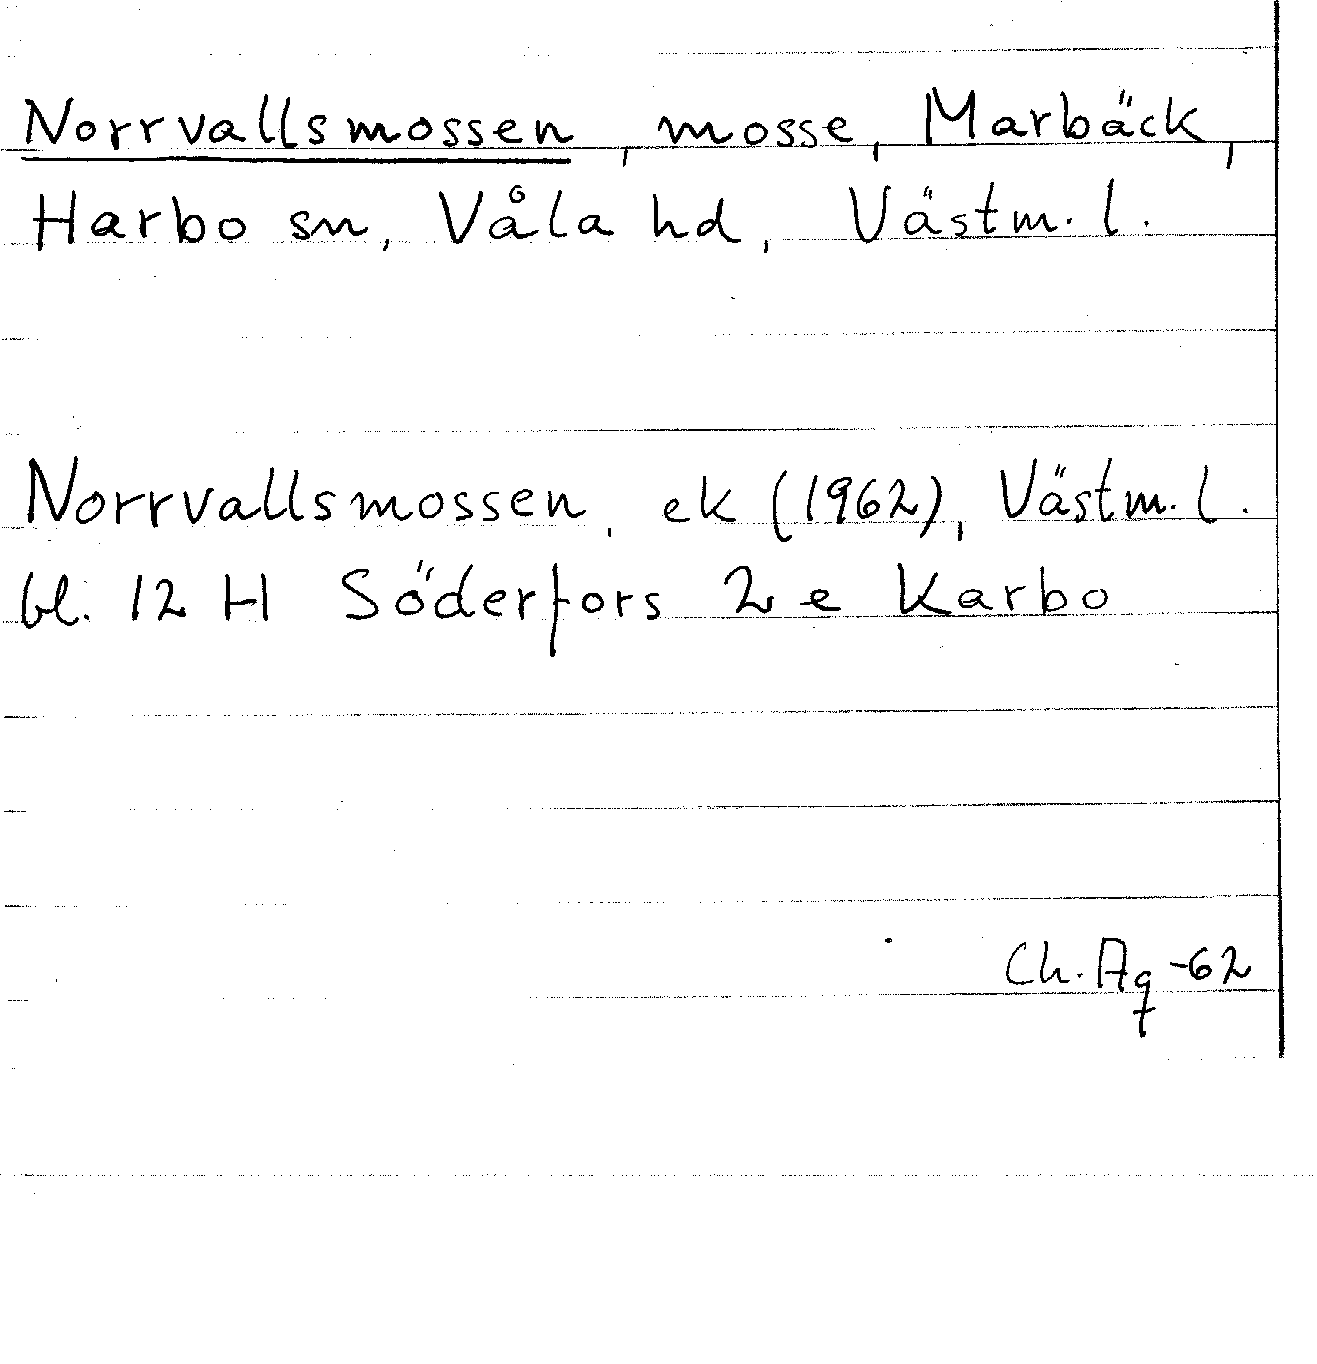 Norrvallsmossen, mosse, Marbäck,
Harbo sn, Våla hd, Västm. l.
Norrvallsmossen, ek (1962), Västm. l.
bl. 12 H Söderfors 2 e Karbo
Ch. Aq -62